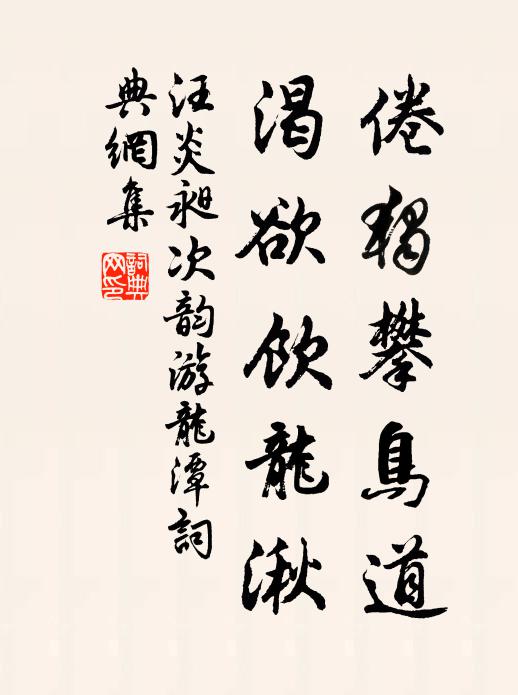 倦猶攀鳥道
渴欲飲龍湫
汪炎昶次韵游龍潭詞
典網集
詞典网印